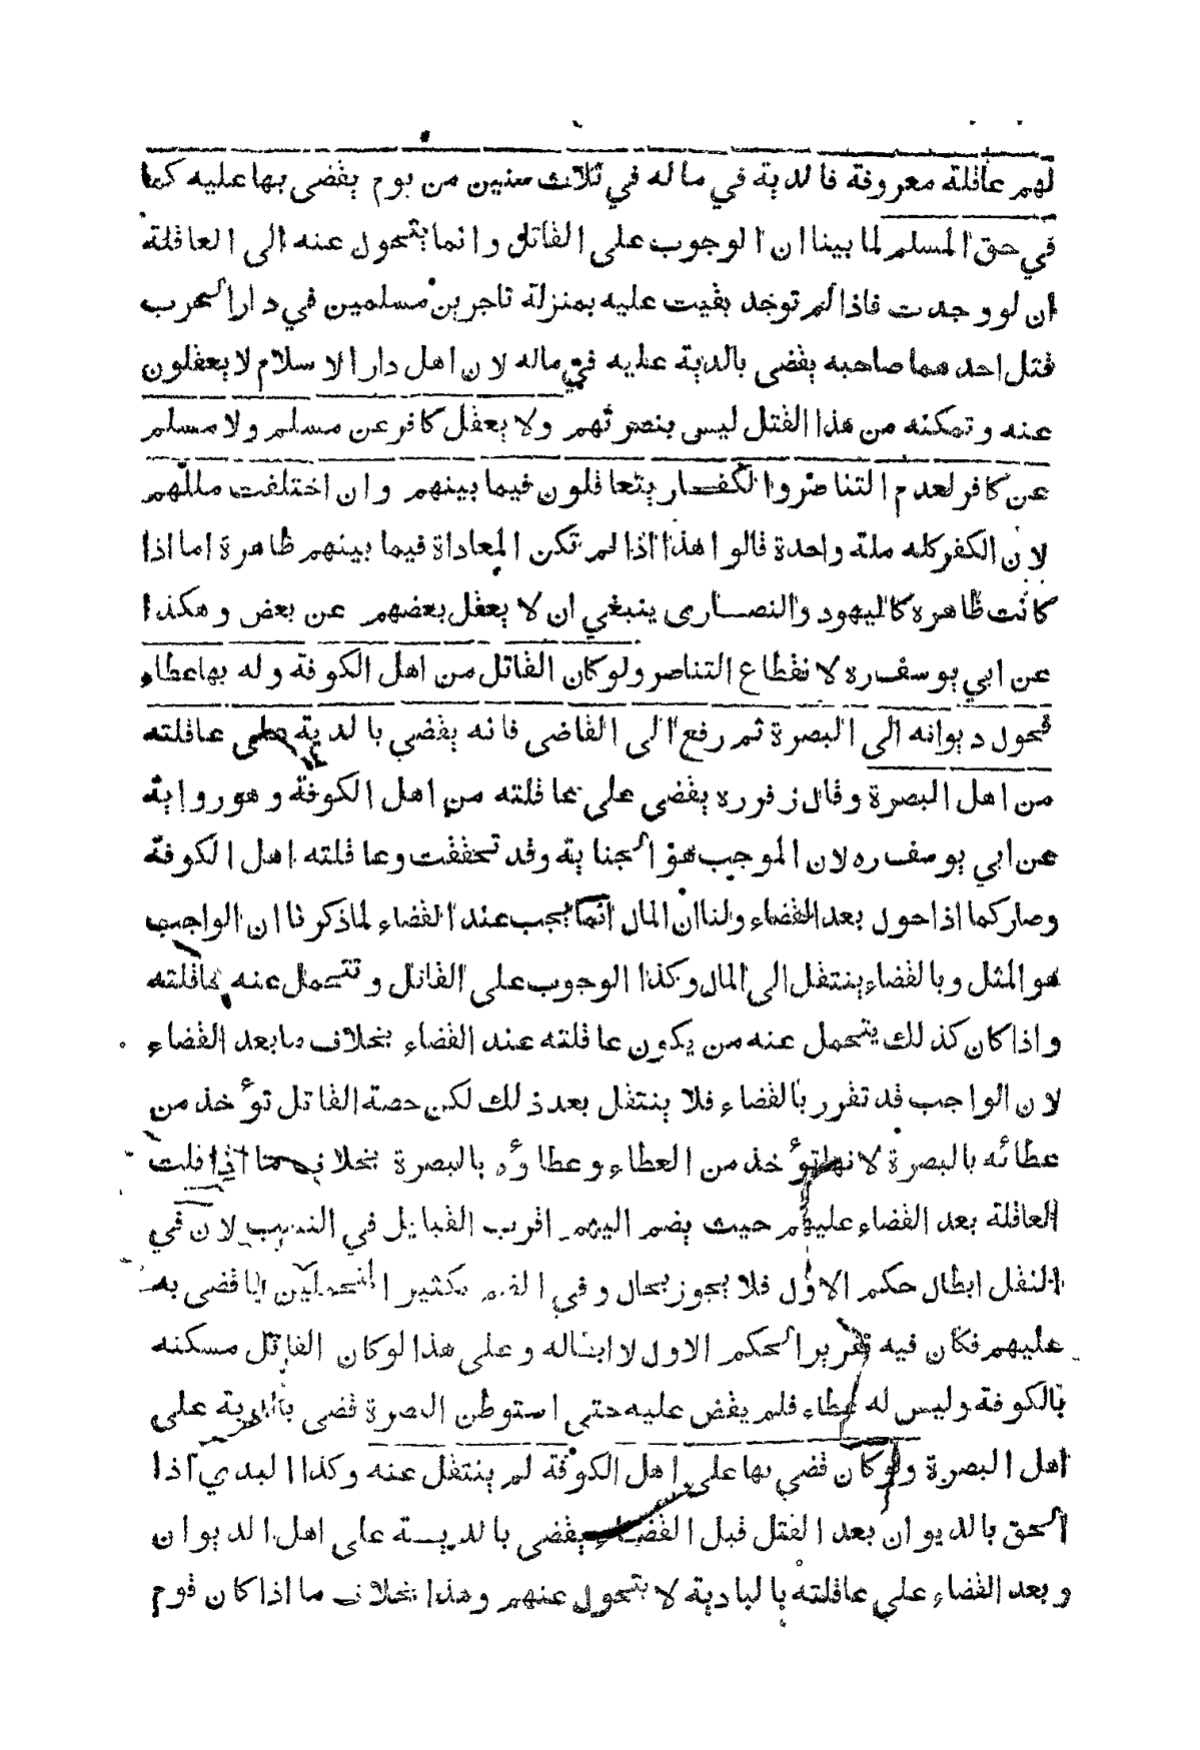 لهم عاقلة معروفة فالدية في ماله في ثلاث سنين من يوم يقضى بها عليه كما
في حق المسلم لما بينا ان الوجوب على القاتل وانما يتحول عنه الى العاقلة
ان لو وجدت فاذا لم توجد بقيت عليه بمنزلة تاجرين مسلمين في دار الحرب
قتل احدهما صاحبه يقضى بالدية عليه في ماله لان اهل دار الاسلام لا يعقلون
عنه وتمكنه من هذا القتل ليس بنصرتهم ولا يعقل كافر عن مسلم ولا مسلم
عن كافر لعدم التناصر والكفار يتعاقلون فيما بينهم وان اختلفت مللهم
لان الكفر كله ملة واحدة قالوا هذا اذا لم تكن المعاداة فيما بينهم ظاهرة اما اذا
كانت ظاهره كاليهود والنصارى ينبغي ان لا يعقل بعضهم عن بعض وهكذا
عن ابي يوسف ره لانقطاع التناصر ولو كان القاتل من اهل الكوفة وله بها عطاء
فحول ديوانه الى البصرة ثم رفع الى القاضى فانه يقضي بالدية على عاقلته
من اهل البصرة وقال زفر ره يقضى على عاقلته من اهل الكوفة وهو رواية
عن ابي يوسف ره لان الموجب هو الجناية وقد تحققت وعاقلته اهل الكوفة
وصار كما اذا حول بعد القضاء ولنا ان المال انما يجب عند القضاء لما ذكرنا ان الواجب
هو المثل وبالقضاء ينتقل الى المال وكذا الوجوب على القاتل وتتحمل عنه عاقلته
واذا كان كذلك يتحمل عنه من يكون عاقلته عند القضاء بخلاف ما بعد القضاء
لان الواجب قد تقرر بالقضاء فلا ينتقل بعد ذلك لكن حصة القاتل تؤخذ من
عطائه بالبصرة لانها تؤخذ من العطاء وعطاؤه بالبصرة بخلاف ما اذا قلت
العاقلة بعد القضاء عليهم حيث يضم اليهم اقرب القبايل في النسب لان في
النقل ابطال حكم الاول فلا يجوز بحال وفي الضم تكثير المتحملين لما قضى به
عليهم فكان فيه تقرير الحكم الاول لا ابطاله وعلى هذا لو كان القاتل مسكنه
بالكوفة وليس له عطاء فلم يقض عليه حتى استوطن البصرة قضى بالدية على
اهل البصرة ولو كان قضي بها على اهل الكوفة لم ينتقل عنه وكذا البدي اذا
الحق بالديوان بعد القتل قبل القضاء يقضى بالدية على اهل الديوان
وبعد القضاء على عاقلته بالبادية لا يتحول عنهم وهذا بخلاف ما اذا كان قوم